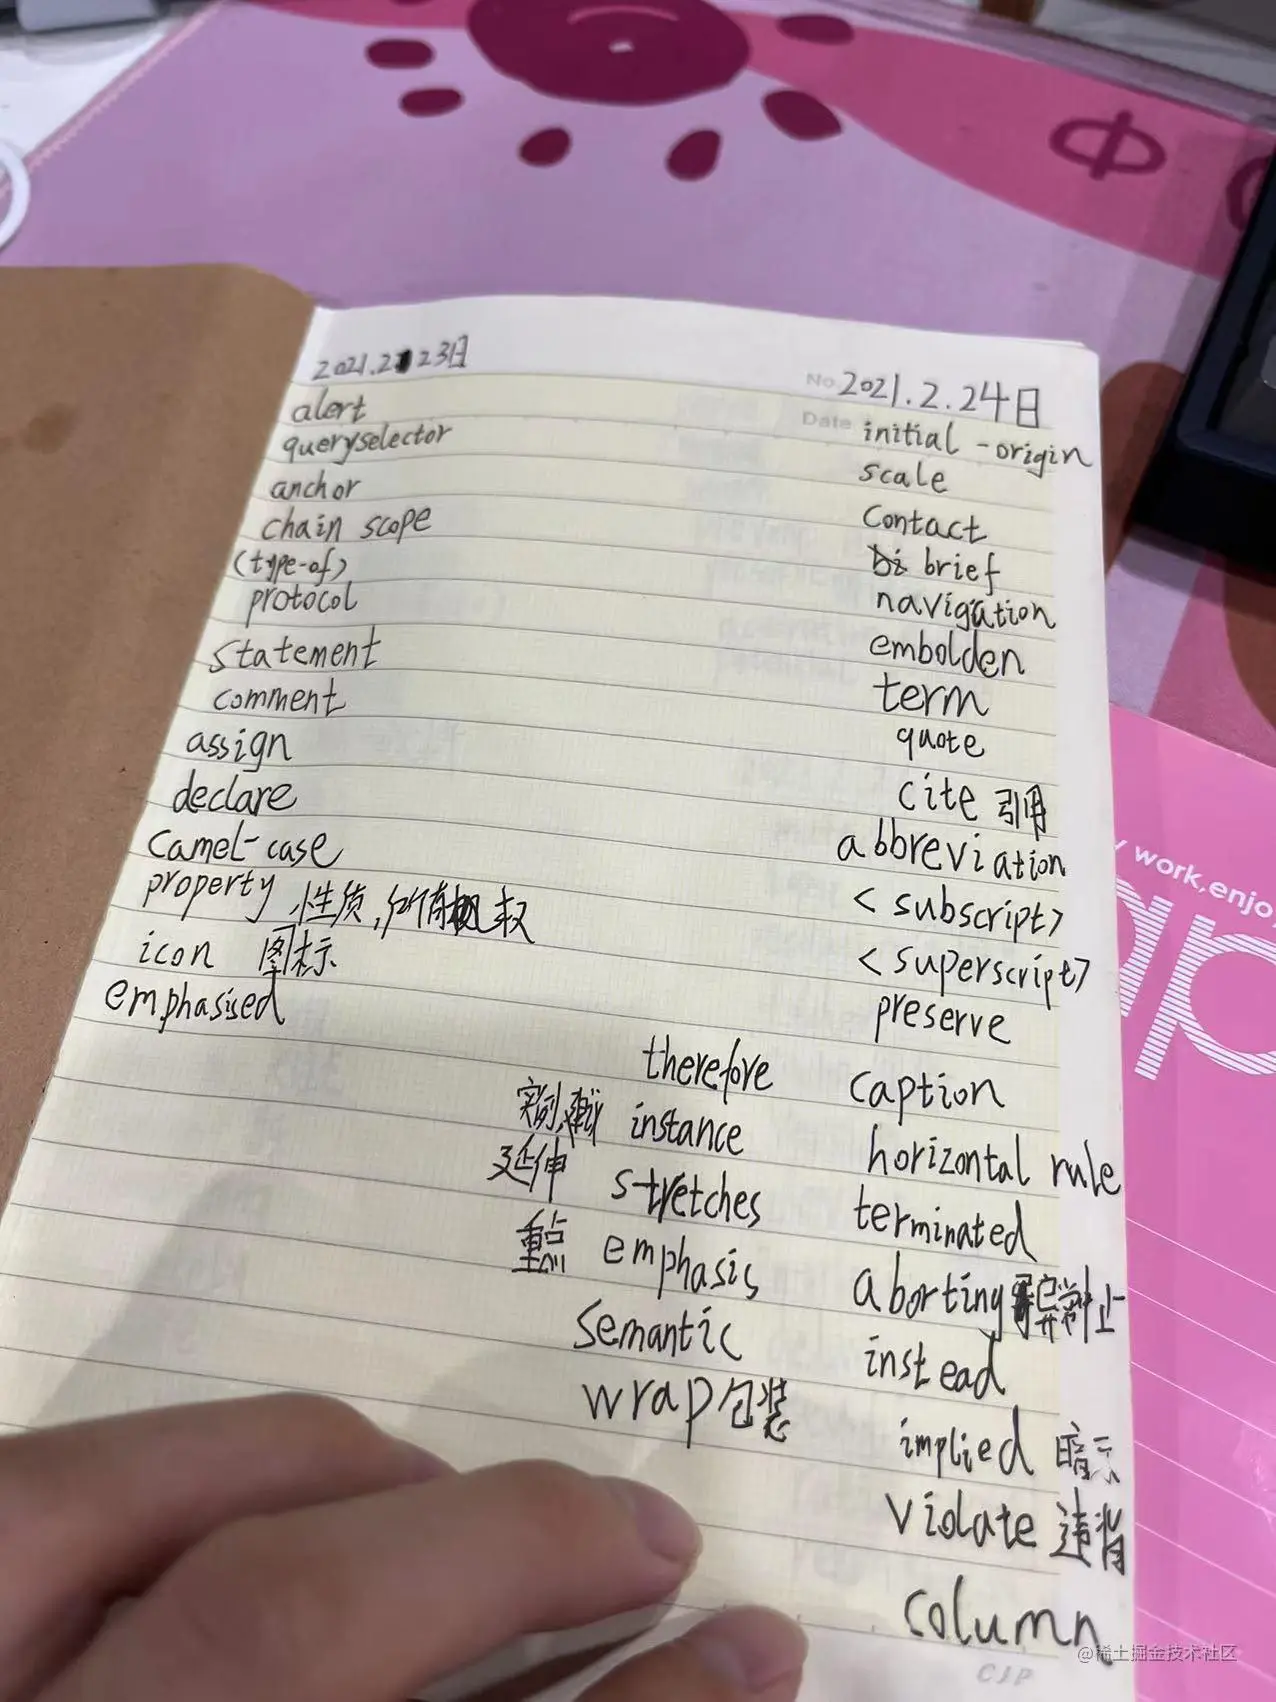 2021.2 23日
alert
queryselector
anchor
chain scope
(type-of)
protocol
statement
comment
assign
declare
camel-case
property 性质,所有权
icon 图标
emphasised
No. 2021.2.24日
Date initial - origin
scale
Contact
brief
navigation
embolden
term
quote
cite 引用
abbreviation
< subscript>
< superscript>
preserve
therefore caption
实例, instance horizontal rule
延伸 stretches terminated
重点 emphasis aborting 异常中止
semantic instead
wrap 包装 implied 暗示
violate 违背
column
CJP
y work,enjo
@稀土掘金技术社区